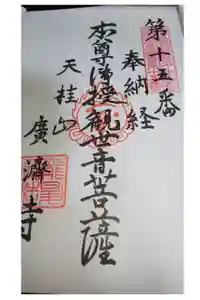 第十五番
奉納経
本尊 観世音菩薩
天桂山
廣濟寺